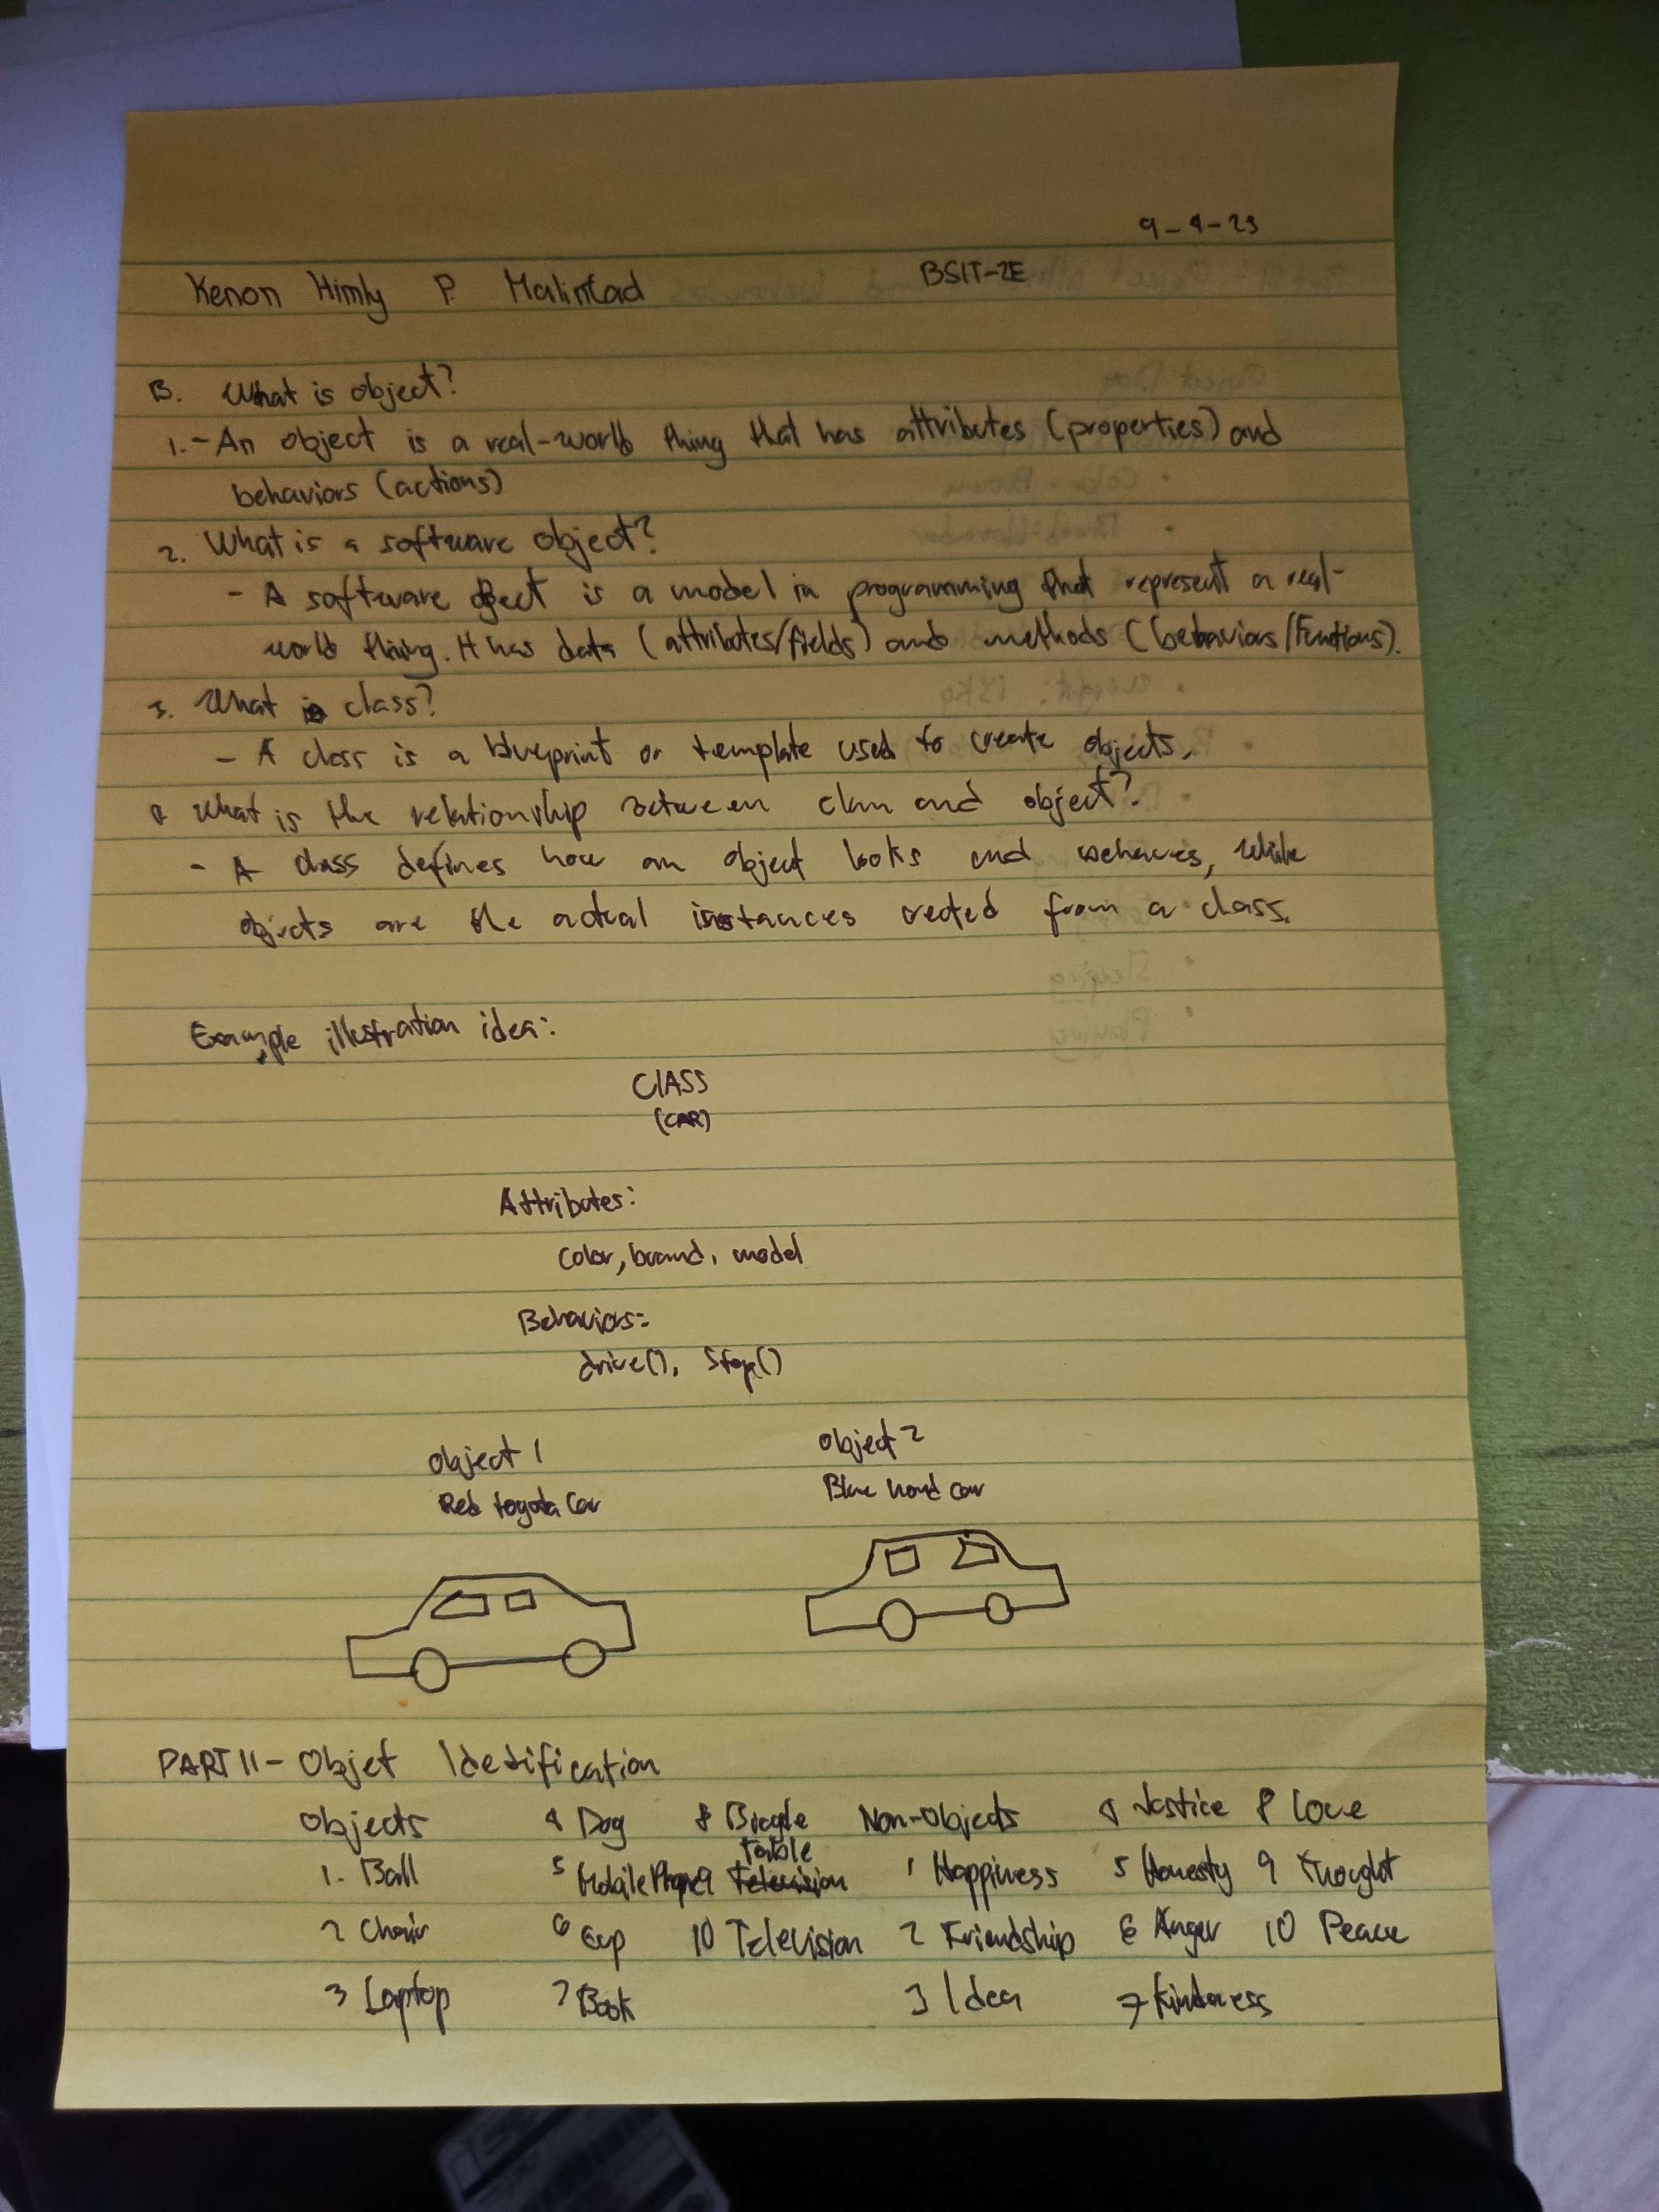 9-4-23
Kenon Himly P. Malintad BSIT-2E
B. What is object?
1.- An object is a real-world thing that has attributes (properties) and
behaviors (actions)
2. What is a software object?
- A software object is a model in programming that represent a real-
world thing. It has data (attributes/fields) and methods (behaviors/Functions).
3. What is class?
- A class is a blueprint or template used to create objects.
4 What is the relationship between class and object?
- A class defines how an object looks and behaves, while
objects are the actual instances created from a class.
Example illustration idea:
CLASS
(CAR)
Attributes:
Color, brand, model
Behaviors:
drive(), Stop()
Object 1 Object 2
Red toyota Car Blue hond car
PART II - Objet Idetification
Objects 4 Dog 8 Bicycle Non-Objects 4 Justice 8 Love
Table
1. Ball 5 Mobile Phone 9 Television 1 Happiness 5 Honesty 9 Thought
2 Chair 6 Cup 10 Television 2 Friendship 6 Anger 10 Peace
3 Laptop 7 Book 3 Idea 7 Kindness